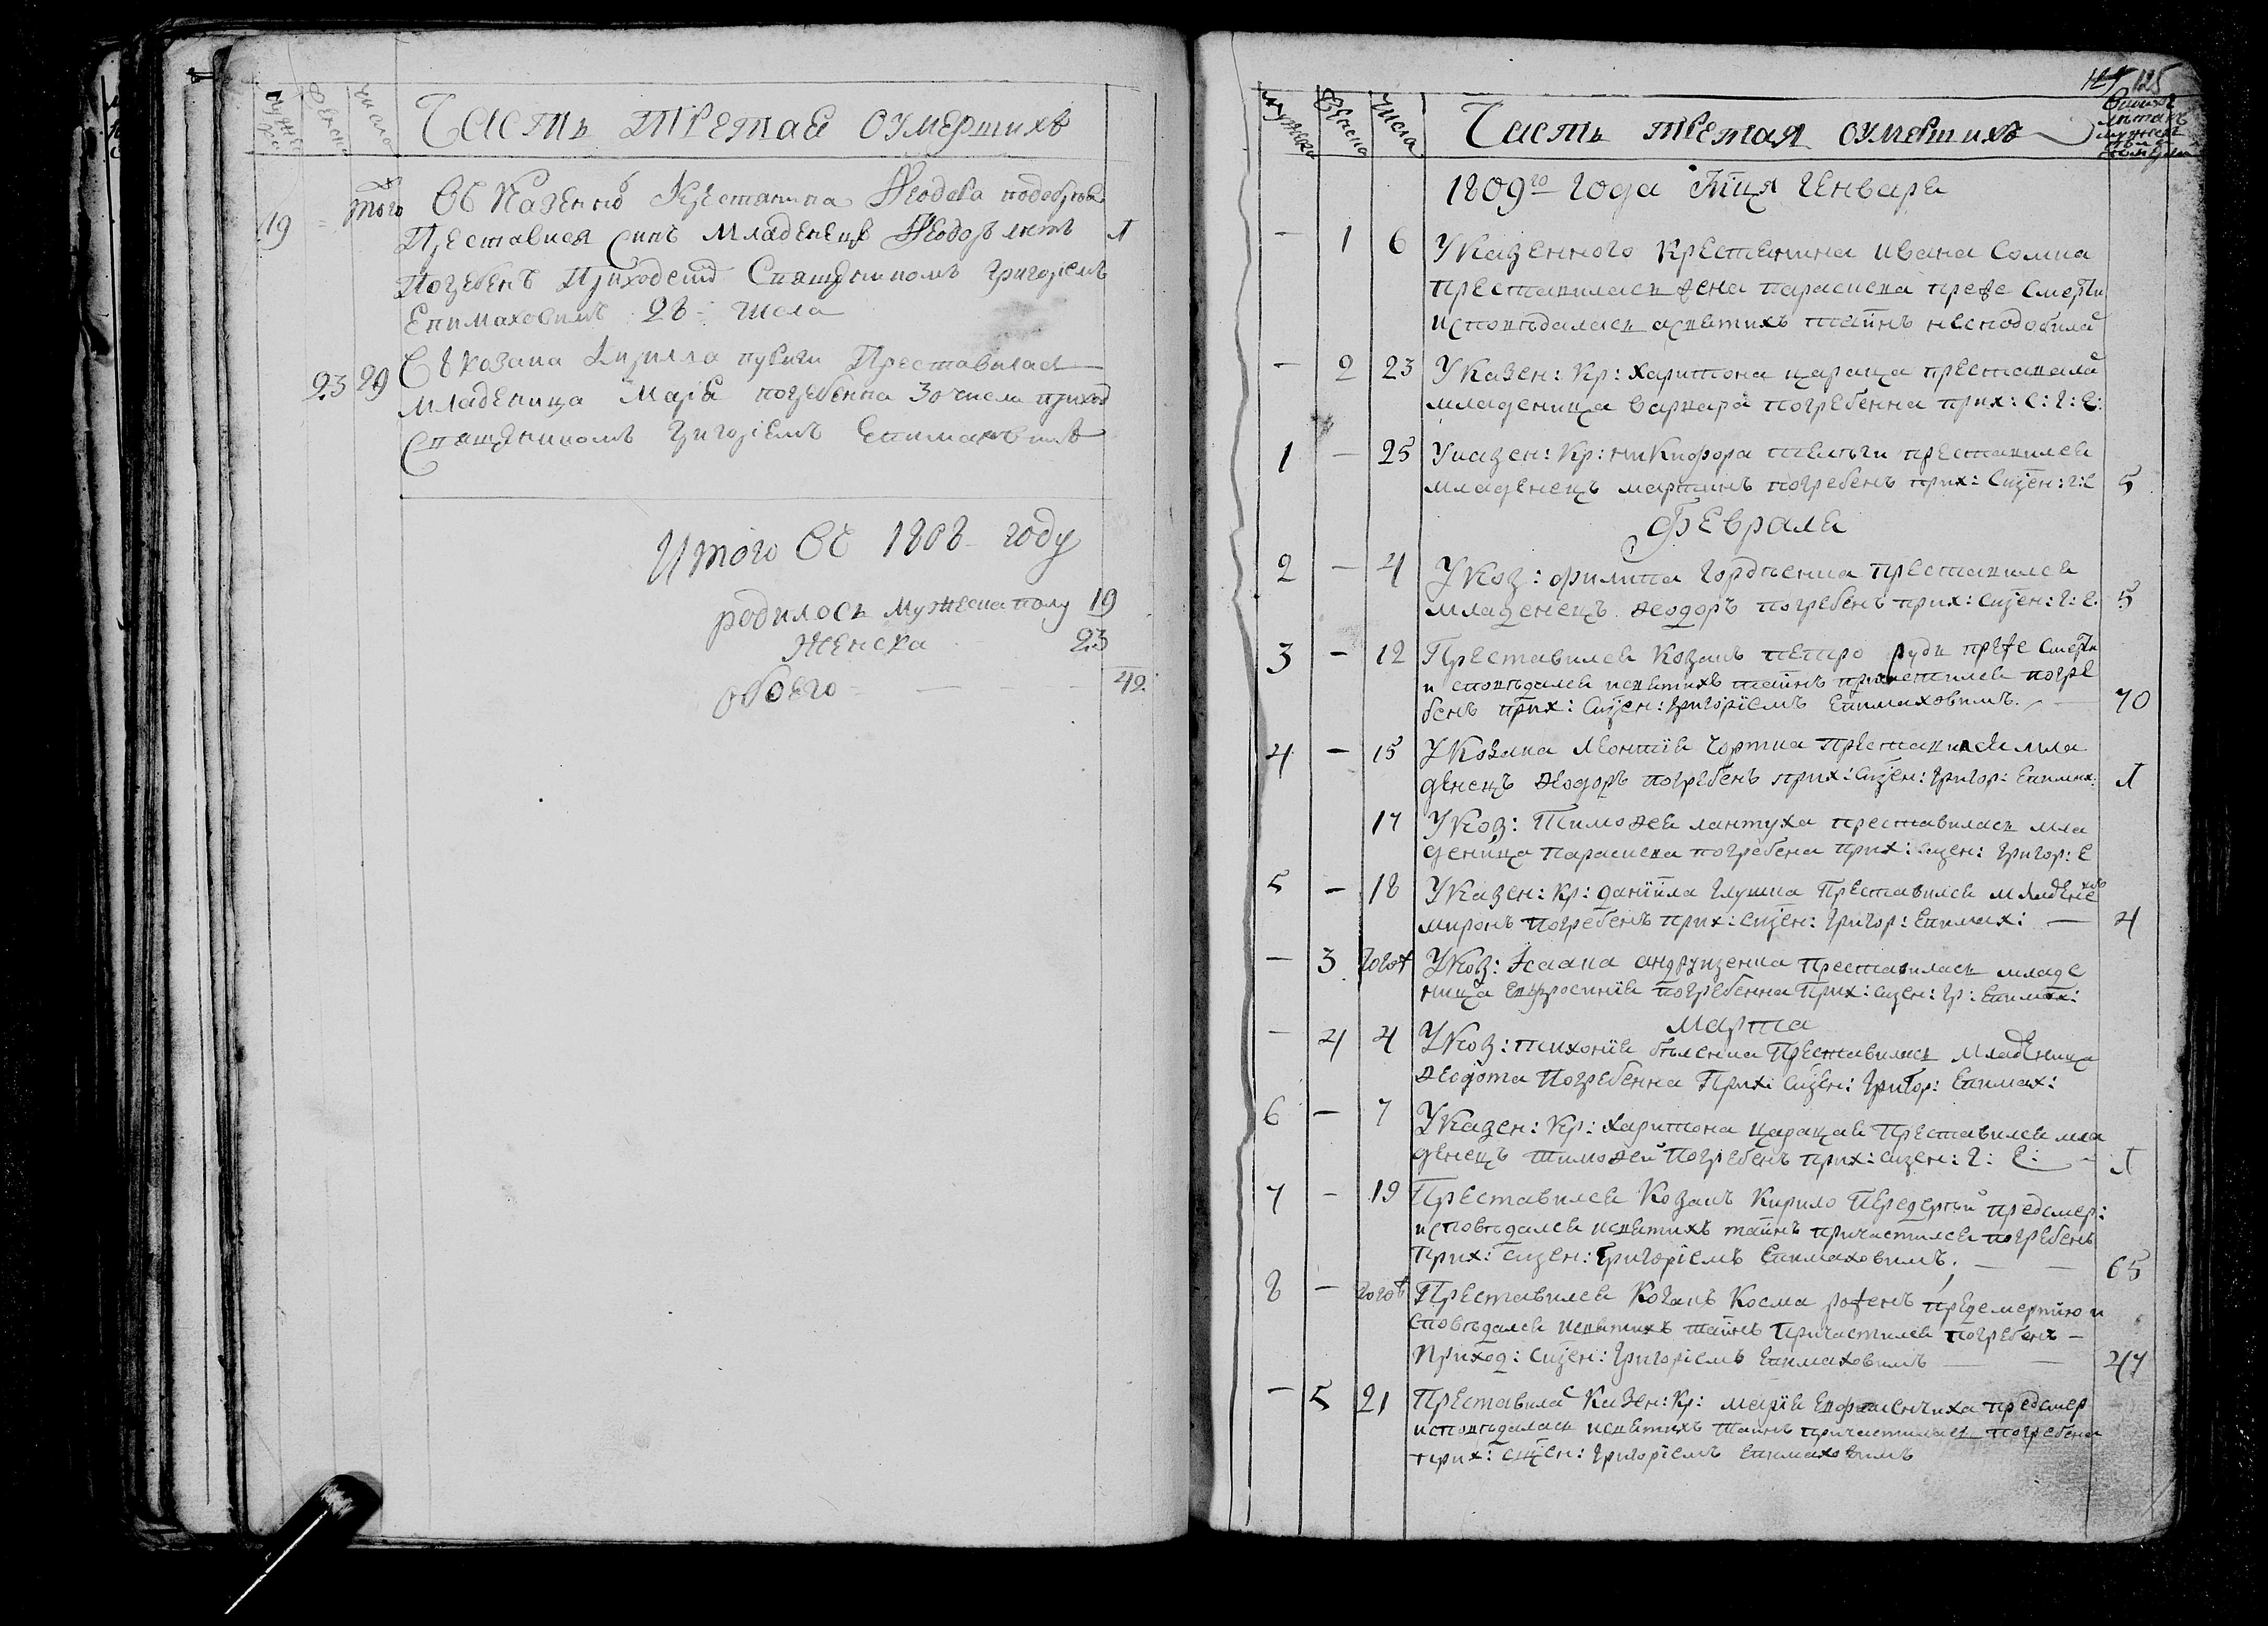 мужеска
женска
число
Часть третая оумершихъ
19 = того ж Ѿ Казенно Крестянина Ѳеодора
Преставися Синъ Младенецъ Ѳеодоръ летъ 1
Погребенъ Приходским Священникомъ Григоріемъ
Епимаховимъ 28 = числа
23 29 Ѿ козака Кирилла Преставилася
младеница Маріа погребенна 30 числа приход
Священникомъ Григоріемъ Епимаховимъ
Итого Ѿ 1808 году
родилось мужеска полу 19
женска 23
обоего 42
125
мужеска
женска
числа
Часть третая оумершихъ
1809го года Мця Генвара
– 1 6 У Казенного Крестянина Ивана Сомка
преставилась жена параскева преже смерти
исповѣдалась а святихъ таинъ несподобилас
– 2 23 У Казен: Кр: Харитона цараца преставилас
младеница варвара погребенна прих: с: г: е:
1 – 25 У казен: Кр: никифора преставился
младенецъ мартинъ погребенъ прих: Сщен: г: е 5
Февраля
2 – 4 У Коз: филипа Гордѣенка преставился
младенецъ Ѳеодоръ погребенъ прих: сщен: г: е. 5
3 – 12 Преставился Козакъ петро рудь преже смерти
исповѣдался и святихъ таинъ причастился погре
бенъ прих: Сщен: Григоріемъ Епимаховимъ. 70
4 – 15 У Козака Леонтія Чортка преставился мла
денецъ Ѳеодоръ погребенъ прих: Сщен: Григор: Епимах: 1
17 У Коз: Тимоѳея лантуха преставилась мла
деница параскева погребена прих: сщен: Григор: Е
5 – 18 У Казен: Кр: даніила Глушка Преставился младене
миронъ погребенъ прих: сщен: Григор: Епимах: – 4
– 3 того ж У Коз: Исаака андрущенка преставилась младе
ница ефросинія погребенна прих: сщен: Гр: Епимах:
Марта
– 4 4 У Коз: тихонія бѣленка Преставилась Младеница
Ѳеодота Погребенна Прих: сщен: Григор: Епимах:
6 – 7 У Казен: Кр: Харитона царацая Преставился мла
денецъ тимоѳей Погребенъ прих: сщен: г: Е: 1
7 – 19 Преставился Козакъ Кирило Передерѣй предсмер:
исповѣдался и святихъ таинъ причастился погребенъ
прих: сщен: Григоріемъ Епимаховимъ. 65
8 – того ж Преставился Козакъ Косма роженъ предсмертію и
сповѣдался и святихъ таинъ причастился погребенъ –
Приход: сщен: Григоріемъ Епимаховимъ 47
– 5 21 Преставилас Казен: Кр: марія предсмер
исповѣдалась и святихъ таинъ причастилась погребена
прих: сщен: Григоріемъ Епимаховимъ